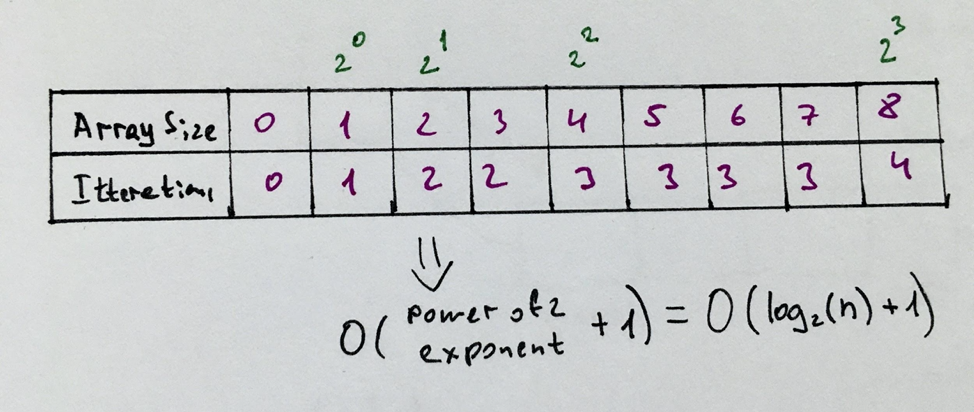 2⁰ 2¹ 2² 2³
Array Size 0 1 2 3 4 5 6 7 8
Itterations 0 1 2 2 3 3 3 3 4
⇓
O( power of 2 exponent + 1) = O(log₂(n) + 1)